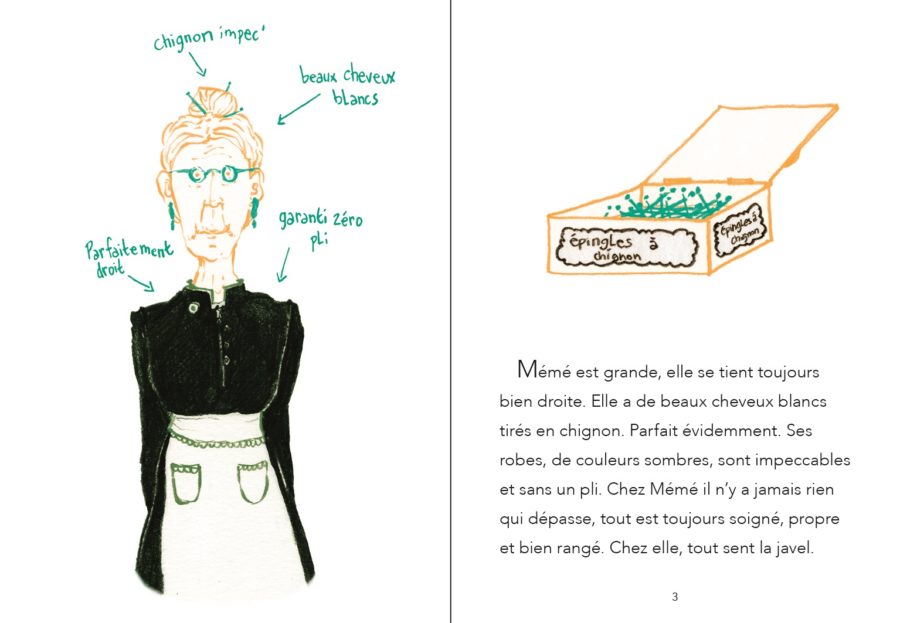 chignon impec'
beaux cheveux
blancs
garanti zéro
pli
Parfaitement
droit
épingles à
chignon
épingles à
chignon
Mémé est grande, elle se tient toujours
bien droite. Elle a de beaux cheveux blancs
tirés en chignon. Parfait évidemment. Ses
robes, de couleurs sombres, sont impeccables
et sans un pli. Chez Mémé il n’y a jamais rien
qui dépasse, tout est toujours soigné, propre
et bien rangé. Chez elle, tout sent la javel.
3